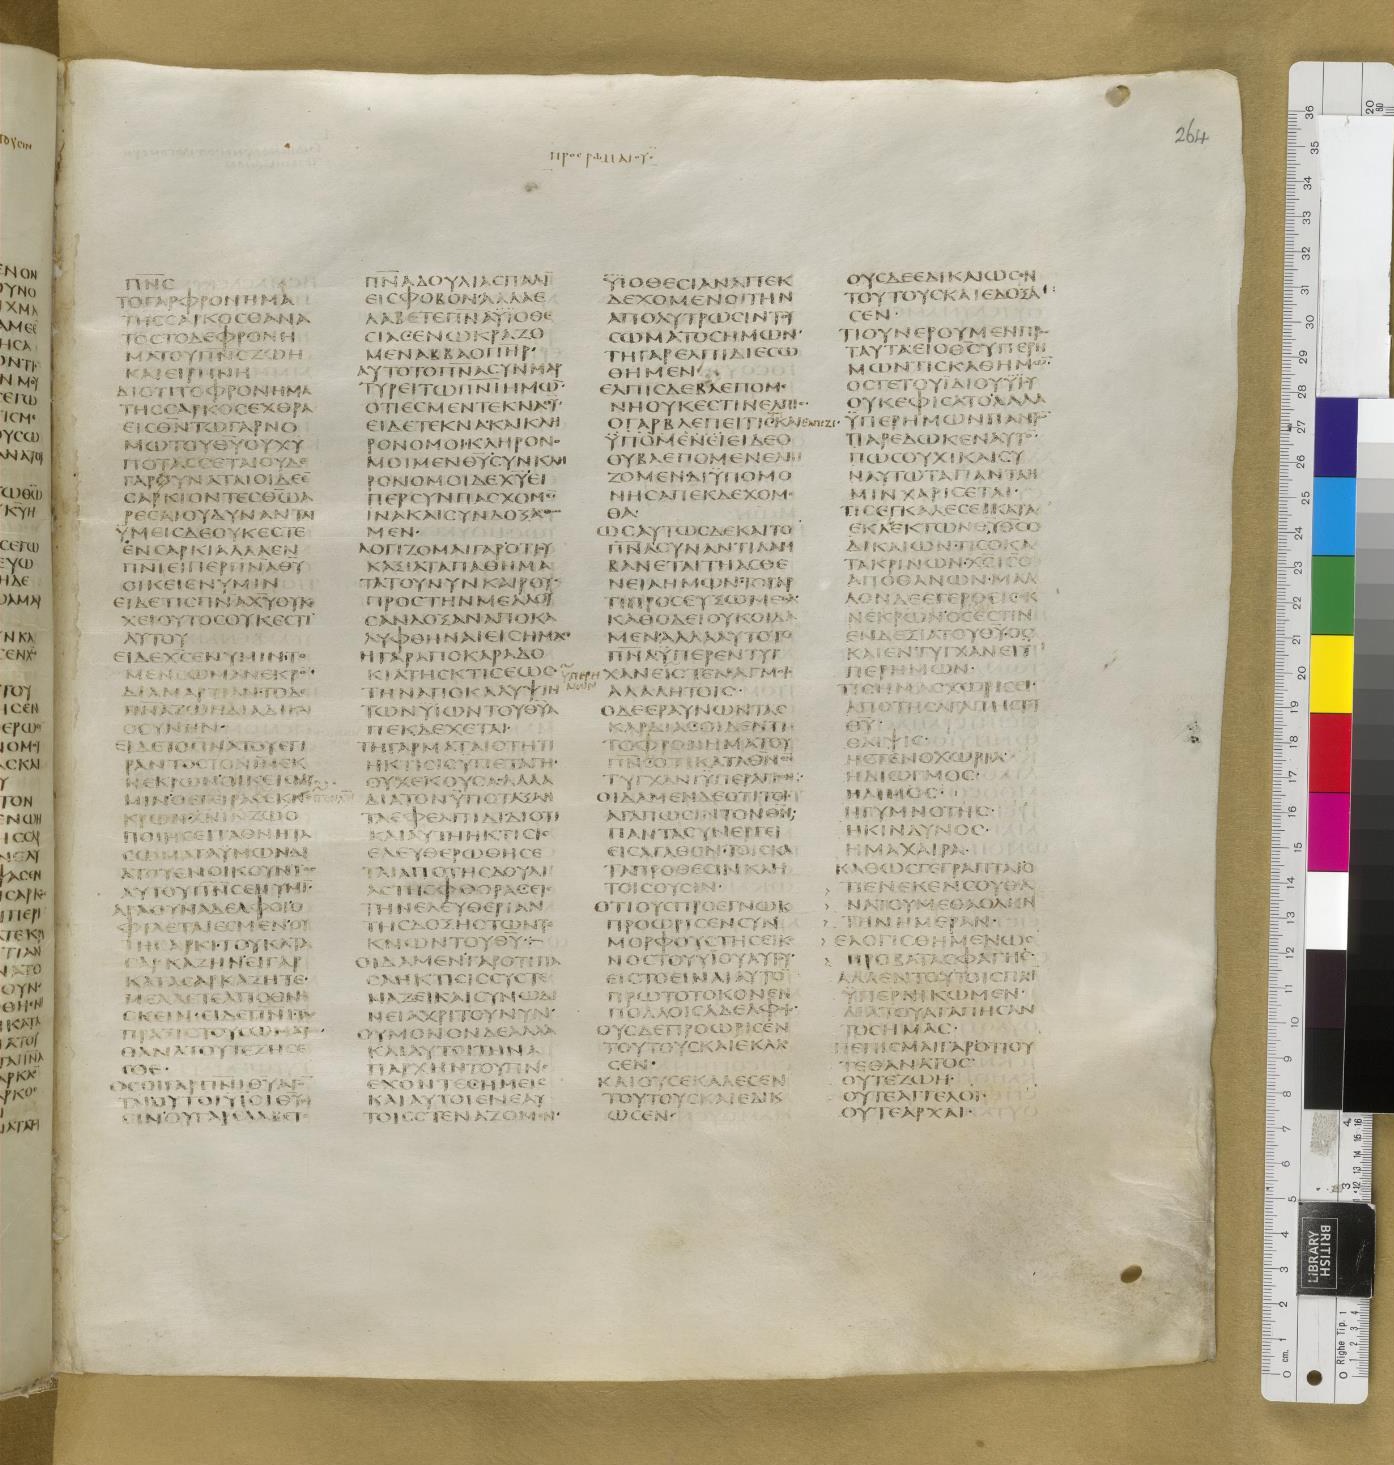 264
ΠΡΟϹ ΡΩΜΑΙΟΥϹ
ΠΝϹ
ΤΟΓΑΡΦΡΟΝΗΜΑ
ΤΗϹϹΑΡΚΟϹΘΑΝΑ
ΤΟϹΤΟΔΕΦΡΟΝΗ
ΜΑΤΟΥΠΝϹΖΩΗ
ΚΑΙΕΙΡΗΝΗ
ΔΙΟΤΙΤΟΦΡΟΝΗΜΑ
ΤΗϹϹΑΡΚΟϹΕΧΘΡΑ
ΕΙϹΘΝΤΩΓΑΡΝΟ
ΜΩΤΟΥΘΥΟΥΧΥ
ΠΟΤΑϹϹΕΤΑΙΟΥΔΕ
ΓΑΡΔΥΝΑΤΑΙΟΙΔΕΕ
ϹΑΡΚΙΟΝΤΕϹΘΩΑ
ΡΕϹΑΙΟΥΔΥΝΑΝΤΑΙ
ΫΜΕΙϹΔΕΟΥΚΕϹΤΕ
ΕΝϹΑΡΚΙΑΛΛΑΕΝ
ΠΝΙΕΙΠΕΡΠΝΑΘΥ
ΟΙΚΕΙΕΝΥΜΙΝ
ΕΙΔΕΤΙϹΠΝΑΧΥΟΥΚ
ΧΕΙΟΥΤΟϹΟΥΚΕϹΤΙ
ΑΥΤΟΥ
ΕΙΔΕΧϹΕΝΥΜΙΝΤΟ
ΜΕΝϹΩΜΑΝΕΚΡΟ
ΔΙΑΜΑΡΤΙΑΝ·ΤΟΔΕ
ΠΝΑΖΩΗΔΙΑΔΙΚΑΙ
ΟϹΥΝΗΝ·
ΕΙΔΕΤΟΠΝΑΤΟΥΕΓΙ
ΡΑΝΤΟϹΤΟΝΙΝΕΚ
ΝΕΚΡΩΝΟΙΚΕΙΕΝΥ
ΜΙΝΟΕΓΕΙΡΑϹΕΚΝΕ
ΚΡΩΝΧΝΙΝΖΩΟ
ΠΟΙΗϹΕΙΤΑΘΝΗΤΑ
ϹΩΜΑΤΑΫΜΩΝΔΙ
ΑΤΟΥΕΝΟΙΚΟΥΝΤΟϹ
ΑΥΤΟΥΠΝϹΕΝΥΜΙ
ΑΡΑΟΥΝΑΔΕΛΦΟΙΟ
ΦΙΛΕΤΑΙΕϹΜΕΝΟΥ
ΤΗϹΑΡΚΙΤΟΥΚΑΤΑ
ϹΑΡΚΑΖΗΝΕΙΓΑΡ
ΚΑΤΑϹΑΡΚΑΖΗΤΕ·
ΜΕΛΛΕΤΕΑΠΟΘΝΗ
ϹΚΕΙΝ·ΕΙΔΕΠΝΙΤΑϹ
ΠΡΑΞΙϹΤΟΥϹΩΜΑΤΟϹ
ΘΑΝΑΤΟΥΤΕΖΗϹΕ
ϹΘΕ·
ΟϹΟΙΓΑΡΠΝΙΘΥΑΓΟ
ΤΑΙΟΥΤΟΙΥΙΟΙΘΥ
ΕΙϹΙΝΟΥΓΑΡΕΛΑΒΕΤΕ
ΠΝΑΔΟΥΛΙΑϹΠΑΛΙ
ΕΙϹΦΟΒΟΝΑΛΛΑΕ
ΛΑΒΕΤΕΠΝΑΫΙΟΘΕ
ϹΙΑϹΕΝΩΚΡΑΖΟ
ΜΕΝΑΒΒΑΟΠΗΡ·
ΑΥΤΟΤΟΠΝΑϹΥΝΜΑΡ
ΤΥΡΕΙΤΩΠΝΙΗΜΩ
ΟΤΙΕϹΜΕΝΤΕΚΝΑΘΥ
ΕΙΔΕΤΕΚΝΑΚΑΙΚΛΗ
ΡΟΝΟΜΟΙΚΛΗΡΟΝΟ
ΜΟΙΜΕΝΘΥϹΥΝΚΛΗ
ΡΟΝΟΜΟΙΔΕΧΥΕΙ
ΠΕΡϹΥΝΠΑϹΧΟΜΕ
ΙΝΑΚΑΙϹΥΝΔΟΞΑϹΘΩ
ΜΕΝ·
ΛΟΓΙΖΟΜΑΙΓΑΡΟΤΙΟΥ
ΚΑΞΙΑΤΑΠΑΘΗΜΑ
ΤΑΤΟΥΝΥΝΚΑΙΡΟΥ
ΠΡΟϹΤΗΝΜΕΛΛΟΥ
ϹΑΝΔΟΞΑΝΑΠΟΚΑ
ΛΥΦΘΗΝΑΙΕΙϹΗΜΑϹ
ΗΓΑΡΑΠΟΚΑΡΑΔΟ
ΚΙΑΤΗϹΚΤΙϹΕΩϹ
ΤΗΝΑΠΟΚΑΛΥΨΙΝ
ΤΩΝΥΙΩΝΤΟΥΘΥΑ
ΠΕΚΔΕΧΕΤΑΙ·
ΤΗΓΑΡΜΑΤΑΙΟΤΗΤΙ
ΗΚΤΙϹΙϹΥΠΕΤΑΓΗ·
ΟΥΧΕΚΟΥϹΑΑΛΛΑ
ΔΙΑΤΟΝΫΠΟΤΑΞΑΝ
ΤΑΕΦΕΛΠΙΔΙΔΙΟΤΙ
ΚΑΙΑΥΤΗΗΚΤΙϹΙϹ
ΕΛΕΥΘΕΡΩΘΗϹΕ
ΤΑΙΑΠΟΤΗϹΔΟΥΛΙ
ΑϹΤΗϹΦΘΟΡΑϹΕΙϹ
ΤΗΝΕΛΕΥΘΕΡΙΑΝ
ΤΗϹΔΟΞΗϹΤΩΝΤΕ
ΚΝΩΝΤΟΥΘΥ·
ΟΙΔΑΜΕΝΓΑΡΟΤΙΠΑ
ϹΑΗΚΤΙϹΙϹϹΥϹΤΕ
ΝΑΖΕΙΚΑΙϹΥΝΩΔΙ
ΝΕΙΑΧΡΙΤΟΥΝΥΝ·
ΟΥΜΟΝΟΝΔΕΑΛΛΑ
ΚΑΙΑΥΤΟΙΤΗΝΑ
ΠΑΡΧΗΝΤΟΥΠΝϹ
ΕΧΟΝΤΕϹΗΜΕΙϹ
ΚΑΙΑΥΤΟΙΕΝΕΑΥ
ΤΟΙϹϹΤΕΝΑΖΟΜΕΝ·
ΫΠΕΡΗ
ΜΩΝ
ΫΙΟΘΕϹΙΑΝΑΠΕΚ
ΔΕΧΟΜΕΝΟΙΤΗΝ
ΑΠΟΛΥΤΡΩϹΙΝΤΟΥ
ϹΩΜΑΤΟϹΗΜΩΝ·
ΤΗΓΑΡΕΛΠΙΔΙΕϹΩ
ΘΗΜΕΝ·
ΕΛΠΙϹΔΕΒΛΕΠΟΜΕ
ΝΗΟΥΚΕϹΤΙΝΕΛΠΙϹ
ΟΓΑΡΒΛΕΠΕΙΤΙϹΚΑΙΕΛΠΙΖΙ
ΫΠΟΜΕΝΕΙΕΙΔΕΟ
ΟΥΒΛΕΠΟΜΕΝΕΛΠΙ
ΖΟΜΕΝΔΙΫΠΟΜΟ
ΝΗϹΑΠΕΚΔΕΧΟΜΕ
ΘΑ·
ΩϹΑΥΤΩϹΔΕΚΑΙΤΟ
ΠΝΑϹΥΝΑΝΤΙΛΑΜ
ΒΑΝΕΤΑΙΤΗΑϹΘΕ
ΝΕΙΑΗΜΩΝΤΟΓΑΡ
ΤΙΠΡΟϹΕΥΞΩΜΕΘΑ
ΚΑΘΟΔΕΙΟΥΚΟΙΔΑ
ΜΕΝΑΛΛΑΑΥΤΟΤΟ
ΠΝΑΫΠΕΡΕΝΤΥΓ
ΧΑΝΕΙϹΤΕΝΑΓΜΟΙϹ
ΑΛΑΛΗΤΟΙϹ·
ΟΔΕΕΡΑΥΝΩΝΤΑϹ
ΚΑΡΔΙΑϹΟΙΔΕΝΤΙ
ΤΟΦΡΟΝΗΜΑΤΟΥ
ΠΝϹΟΤΙΚΑΤΑΘΝΕΝ
ΤΥΓΧΑΝΙΫΠΕΡΑΓΙΩ
ΟΙΔΑΜΕΝΔΕΟΤΙΤΟΙϹ
ΑΓΑΠΩϹΙΝΤΟΝΘΝ
ΠΑΝΤΑϹΥΝΕΡΓΕΙ
ΕΙϹΑΓΑΘΟΝ·ΤΟΙϹΚΑ
ΤΑΠΡΟΘΕϹΙΝΚΛΗ
ΤΟΙϹΟΥϹΙΝ·
ΟΤΙΟΥϹΠΡΟΕΓΝΩΚ
ΠΡΟΩΡΙϹΕΝϹΥΝ
ΜΟΡΦΟΥϹΤΗϹΕΙΚ
ΝΟϹΤΟΥΥΙΟΥΑΥΤΟΥ
ΕΙϹΤΟΕΙΝΑΙΑΥΤΟ
ΠΡΩΤΟΤΟΚΟΝΕΝ
ΠΟΛΛΟΙϹΑΔΕΛΦΟΙϹ
ΟΥϹΔΕΠΡΟΩΡΙϹΕΝ
ΤΟΥΤΟΥϹΚΑΙΕΚΑΛΕ
ϹΕΝ·
ΚΑΙΟΥϹΕΚΑΛΕϹΕΝ
ΤΟΥΤΟΥϹΚΑΙΕΔΙΚ
ΩϹΕΝ·
ΟΥϹΔΕΕΔΙΚΑΙΩϹΕΝ
ΤΟΥΤΟΥϹΚΑΙΕΔΟΞΑ
ϹΕΝ·
ΤΙΟΥΝΕΡΟΥΜΕΝΠΡΟϹ
ΤΑΥΤΑΕΙΟΘϹΥΠΕΡΗ
ΜΩΝΤΙϹΚΑΘΗΜΩ
ΟϹΓΕΤΟΥΙΔΙΟΥΫΙΥ
ΟΥΚΕΦΙϹΑΤΟΑΛΛΑ
ΫΠΕΡΗΜΩΝΠΑΝΤΩ
ΠΑΡΕΔΩΚΕΝΑΥΤΟ
ΠΩϹΟΥΧΙΚΑΙϹΥ
ΝΑΥΤΩΤΑΠΑΝΤΑΗ
ΜΙΝΧΑΡΙϹΕΤΑΙ·
ΤΙϹΕΓΚΑΛΕϹΕΙΚΑΤΑ
ΕΚΛΕΚΤΩΝΘΥΘϹΟ
ΔΙΚΑΙΩΝ·ΤΙϹΟΚΑ
ΤΑΚΡΙΝΩΝ·ΧϹΙϹΟ
ΑΠΟΘΑΝΩΝ·ΜΑΛ
ΛΟΝΔΕΕΓΕΡΘΕΙϹΕΚ
ΝΕΚΡΩΝΟϹΕϹΤΙΝ
ΕΝΔΕΞΙΑΤΟΥΘΥΟϹ
ΚΑΙΕΝΤΥΓΧΑΝΕΙΫ
ΠΕΡΗΜΩΝ·
ΤΙϹΗΜΑϹΧΩΡΙϹΕΙ
ΑΠΟΤΗϹΑΓΑΠΗϹΤΟΥ
ΘΥ·
ΘΛΙΨΙϹ·
ΗϹΤΕΝΟΧΩΡΙΑ·
ΗΔΙΩΓΜΟϹ·
ΗΛΙΜΟϹ·
ΗΓΥΜΝΟΤΗϹ·
ΗΚΙΝΔΥΝΟϹ·
ΗΜΑΧΑΙΡΑ·
ΚΑΘΩϹΓΕΓΡΑΠΤΑΙΟ
ΤΙΕΝΕΚΕΝϹΟΥΘΑ
ΝΑΤΟΥΜΕΘΑΟΛΗΝ
ΤΗΝΗΜΕΡΑΝ·
ΕΛΟΓΙϹΘΗΜΕΝΩϹ
ΠΡΟΒΑΤΑϹΦΑΓΗϹ·
ΑΛΛΕΝΤΟΥΤΟΙϹΠΑϹΙ
ΫΠΕΡΝΙΚΩΜΕΝ·
ΔΙΑΤΟΥΑΓΑΠΗϹΑΝ
ΤΟϹΗΜΑϹ·
ΠΕΠΙϹΜΑΙΓΑΡΟΤΙΟΥ
ΤΕΘΑΝΑΤΟϹ
ΟΥΤΕΖΩΗ·
ΟΥΤΕΑΓΓΕΛΟΙ·
ΟΥΤΕΑΡΧΑΙ·